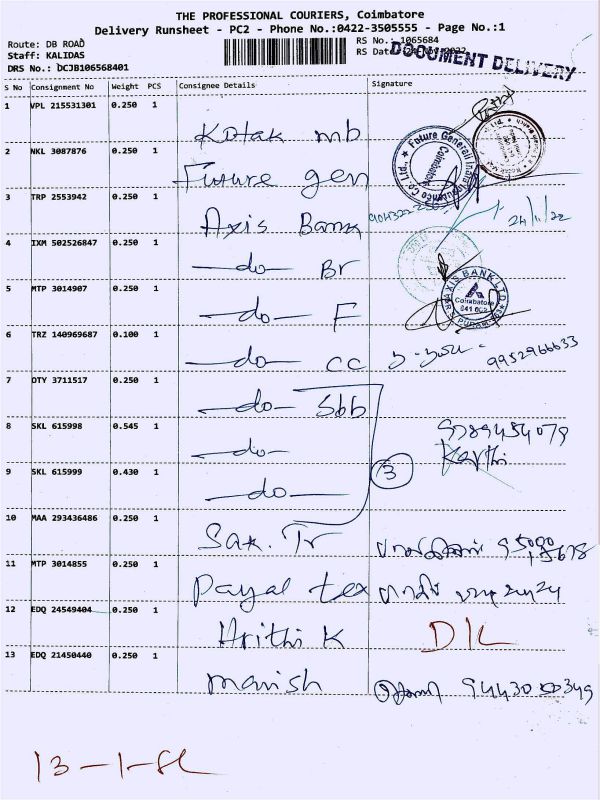 THE PROFESSIONAL COURIERS, Coimbatore
Delivery Runsheet - PC2 - Phone No.:0422-3505555 - Page No.:1
Route: DB ROAD
RS No.: 1065684
Staff: KALIDAS
RS Date
DOCUMENT DELIVERY
DRS No.: DCJB106568401
S No Consignment No Weight PCS Consignee Details Signature
1 VPL 215531301 0.250 1 Kotak mb
2 NKL 3087876 0.250 1 Future gen
Future Generali India Insurance Co. Ltd. Coimbatore
3 TRP 2553942 0.250 1 Axis Bank
24/11/22
4 IXM 502526847 0.250 1 -do- Br
5 MTP 3014907 0.250 1 -do- F
AXIS BANK LTD Coimbatore 641 002 R S PURAM
6 TRZ 140969687 0.100 1 -do- CC
9952966633
7 OTY 3711517 0.250 1 -do- Sbb
8 SKL 615998 0.545 1 -do-
9789454079
Karthi
9 SKL 615999 0.430 1 -do-
3
10 MAA 293436486 0.250 1 Sak. Tr
11 MTP 3014855 0.250 1 Payal tex
12 EDQ 24549404 0.250 1 Hrithik D/L
13 EDQ 21450440 0.250 1 manish
13-1-